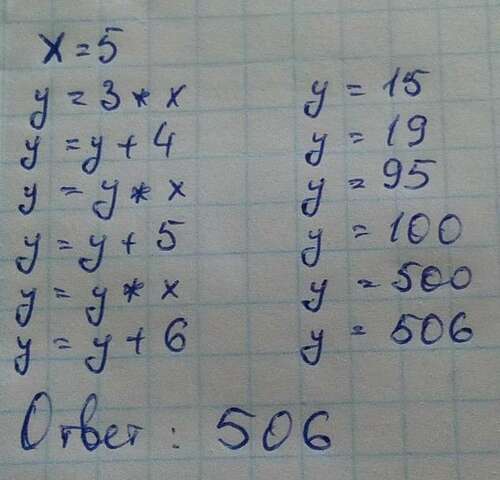 x = 5
y = 3 * x y = 15
y = y + 4 y = 19
y = y * x y = 95
y = y + 5 y = 100
y = y * x y = 500
y = y + 6 y = 506
Ответ: 506